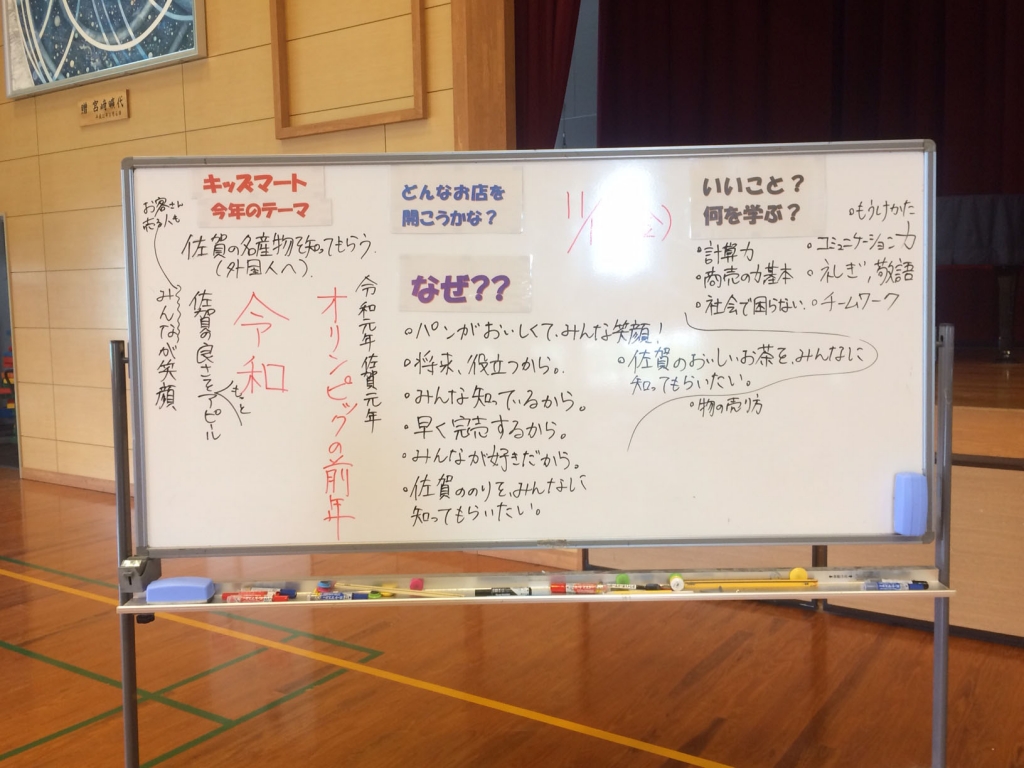 キッズマート
今年のテーマ
お客さん
売る人も
みんなが笑顔
佐賀の名産物を知ってもらう。
(外国人へ)
佐賀の良さをアピール
もっと
令和
オリンピックの前年
令和元年 佐賀元年
どんなお店を
開こうかな?
なぜ??
•パンがおいしくて、みんな笑顔!
•将来、役立つから。
•みんな知っているから。
•早く完売するから。
•みんなが好きだから。
•佐賀ののりを、みんなに
知ってもらいたい。
•佐賀のおいしいお茶を、みんなに
知ってもらいたい。
11/1
いいこと?
何を学ぶ?
•もうけかた
•計算力
•コミュニケーション力
•商売の力基本
•社会で困らない
•チームワーク
•物の売り方